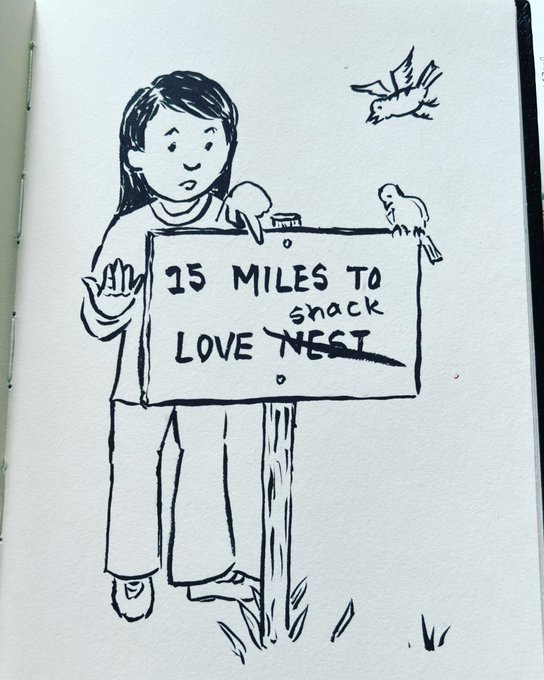 15 MILES TO
shack
LOVE NEST